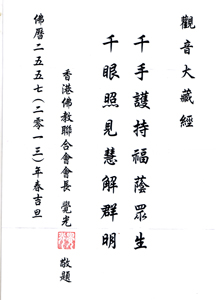 觀音大藏經
千手護持福蔭眾生
千眼照見慧解群明
香港佛教聯合會會長 覺光 敬題
佛曆二五五七(二零一三)年春吉旦